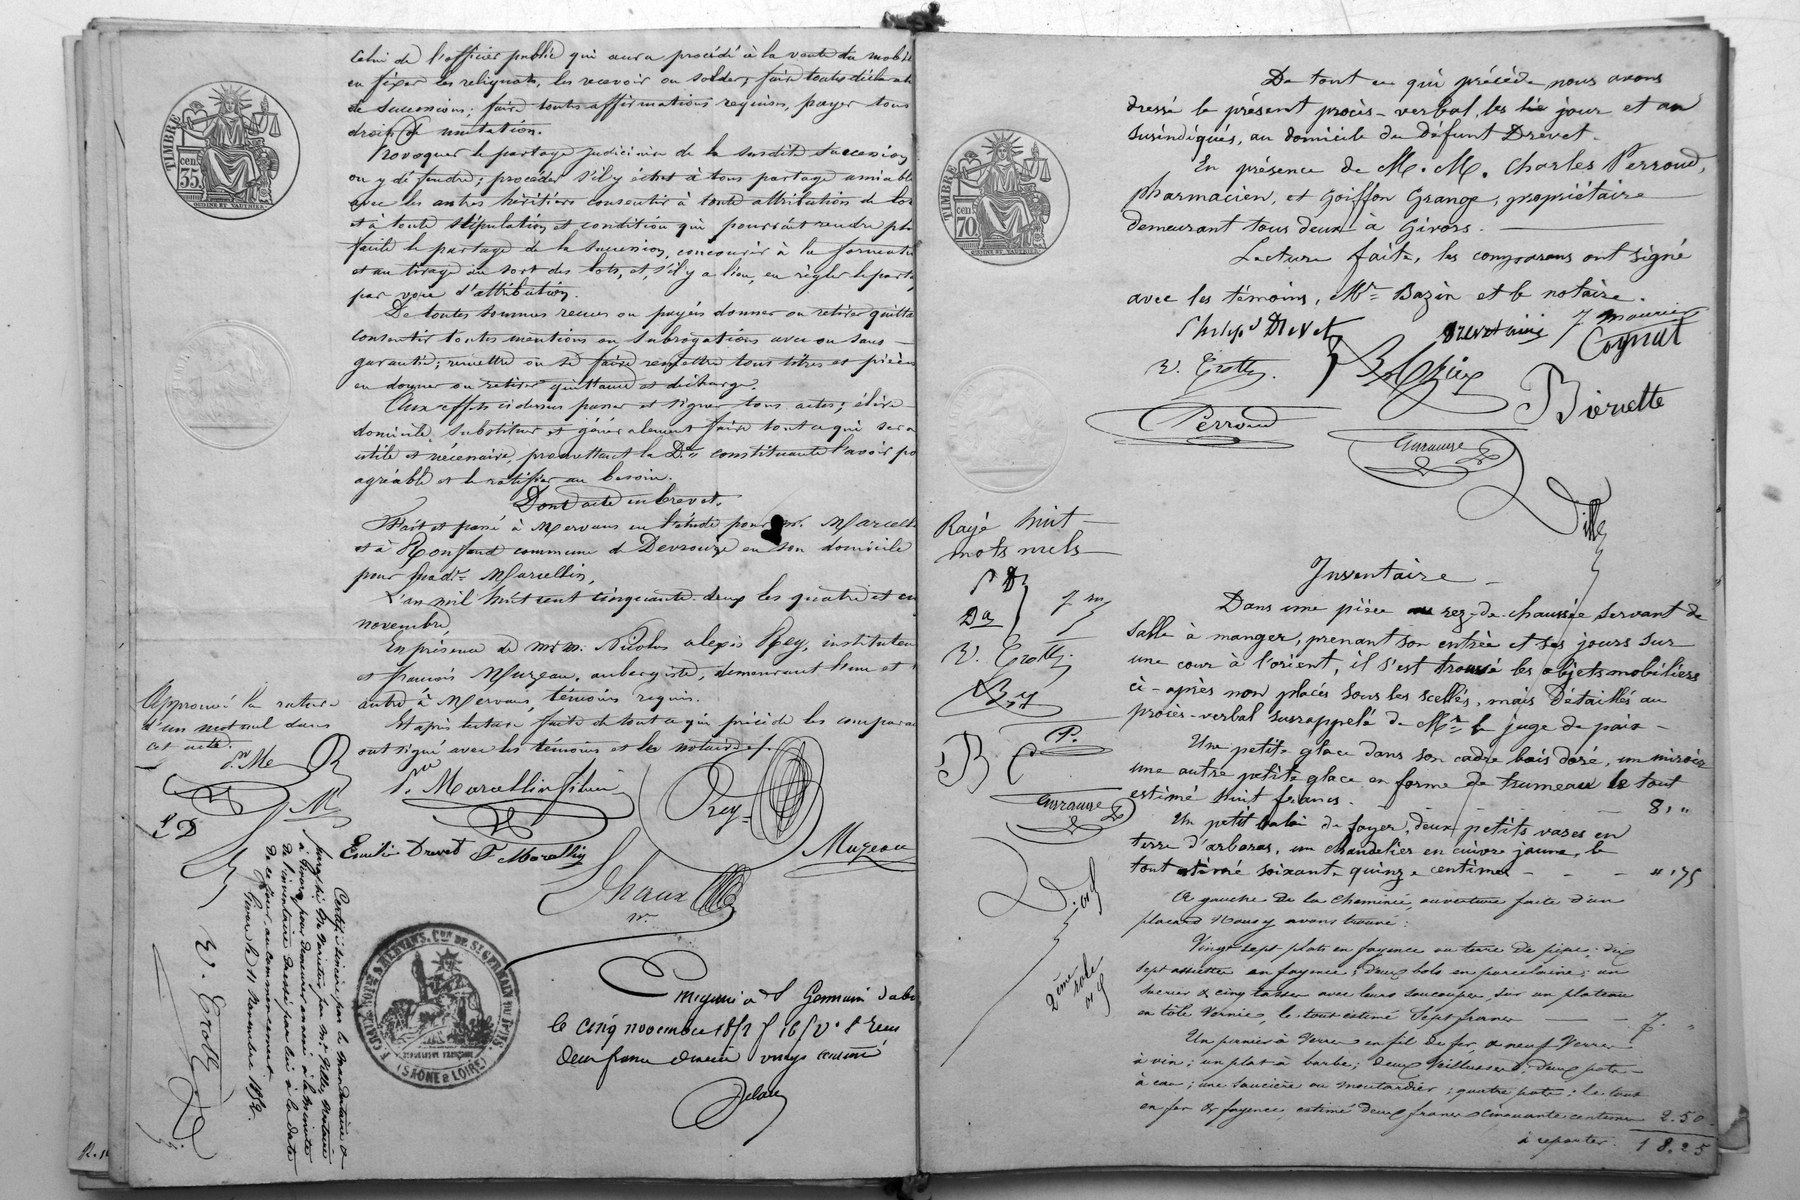 TIMBRE
cen.
35.
celui de l'officier public qui aura procédé à la vente du mobi
en fixer les reliquats, les recevoir ou solder; faire toutes déclarat
de successions; faire toutes affirmations requises, payer tous
droits de mutation.
Provoquer le partage judiciaire de la susdite succession
ou y défendre; procéder s'il y échet à tous partage amiable
avec les autres héritiers consentir à toute attribution de lot
et à toute stipulation et condition qui pourrait rendre plus
facile le partage de la succession, concourir à la formation
et au tirage au sort des lots, et s'il y a lieu, en régler le parta
par voie d'attribution.
De toutes sommes reçues ou payées donner ou retirer quitta
consentir toutes mentions ou subrogations avec ou sans
garantie; remettre ou se faire remettre tous titres et pièces
en donner ou retirer quittance et décharge.
Aux effets ci-dessus passer et signer tous actes; élire
domicile, substituer et généralement faire tout ce qui sera
utile et nécessaire, promettant la De constituante l'avoir po
agréable et le ratifier au besoin.
Dont acte en brevet.
Fait et passé à Mervans en l'étude pour M. Marcell
et à Ronfand commune de Devrouze en son domicile
pour mad. Marcellin,
L'an mil huit cent cinquante-deux les quatre et cin
novembre,
En présence de M.M. Nicolas alexis Rey, instituteur
et françois Muzeau, aubergiste, demeurant l'un et l'
autre à Mervans, témoins requis.
Et après lecture faite de tout ce qui précède les comparan
ont signé avec les témoins et les notaires.
Approuvé la rature
d'un mot nul dans
cet acte.
Me
M
E D
Marcellin
Rey
Emilie Drevet
F Marcellin
Muzeau
Chaux
Certifié sincère par le mandataire &
paraphé Ne Varietur par Me Ville, Notaire
à Givors, pour demeurer annexé à la minute
de l'inventaire dressé par lui à la date
de ce jour, au commencement
Givors le 11 Novembre 1852.
V. Trotty
CHAUX NOTRE A MERVANS, Con DE St GERMAIN DU BOIS.
REPUBLIQUE FRANÇAISE
(SAONE & LOIRE)
Enregistré à St Germain du bois
le cinq novembre 1852 f 16 Vo Reçu
deux francs dixième vingt centimes
Delau
TIMBRE
cen.
70.
De tout ce qui précède nous avons
dressé le présent procès-verbal, les jour et an
susindiqués, au domicile du défunt Drevet.
En présence de M.M. Charles Perroud,
pharmacien, et Goiffon Grange, propriétaire
demeurant tous deux à Givors.
Lecture faite, les comparans ont signé
avec les témoins, Mr Bazin et le notaire.
Philipe Drevet
Drevet ainé
J. Maurier
Cognat
V. Trotty
Bazin
Perroud
Bieruette
Grrange
Ville
Rayé huit
mots nuls
P D
J M
Da
V. Trotty
P.
B
C
Grrange
2ème rôle
Inventaire
Dans une pièce au rez-de-chaussée servant de
salle à manger, prenant son entrée et ses jours sur
une cour à l'orient, il s'est trouvé les objets mobiliers
ci-après non placés sous les scellés, mais détaillés au
procès-verbal susrappelé de Mr le juge de paix
Une petite glace dans son cadre bois doré, un miroir
une autre petite glace en forme de trumeau le tout
estimé huit francs. 8 , "
Un petit balai de foyer, deux petits vases en
terre d'arboras, un chandelier en cuivre jaune, le
tout estimé soixante quinze centimes " , 75
A gauche de la cheminée ouverture faite d'un
placard nous y avons trouvé:
Vingt sept plats en fayence ou terre de pipe, dix
sept assiettes en fayence; deux bols en porcelaine; un
sucrier & cinq tasses avec leurs soucoupes, sur un plateau
en tôle vernie, le tout estimé sept francs 7. "
Un panier à Verres en fil de fer, & neuf Verres
à vin; un plat à barbe; deux veilleuses; deux pots
à eau; une saucière ou moutardier; quatre pots; le tout
en fer & fayence, estimé deux francs cinquante centimes 2.50
à reporter. 18.25